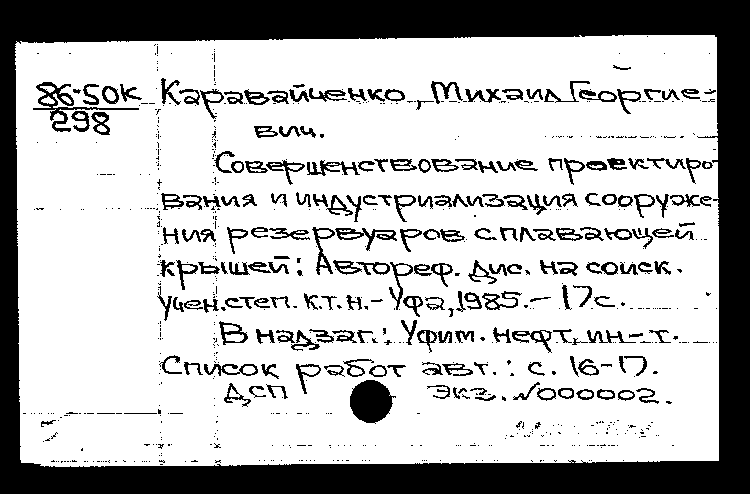 86-50к Каравайченко, Михаил Георгие-
298
вич.
Совершенствование проектиро-
вания и индустриализация сооруже-
ния резервуаров с плавающей
крышей: Автореф. дис. на соиск.
учен. степ. к.т.н. – Уфа, 1985. – 17с.
В надзаг.: Уфим. нефт. ин-т.
Список работ авт.: с. 16-17.
ДСП Экз. №000002.